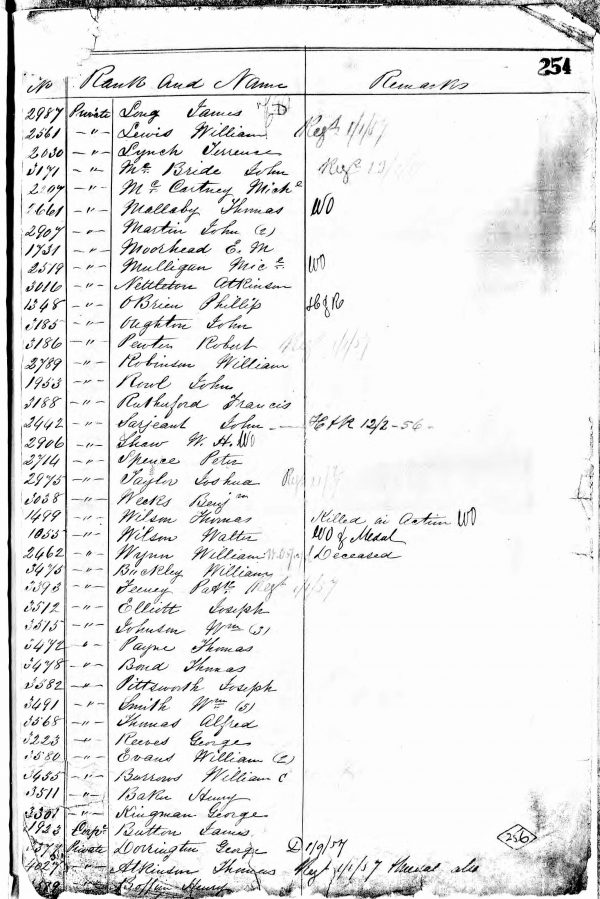 254
No Rank and Name Remarks
2987 Private Long James D
2561 -"- Lewis William Regt 1/1/57
2030 -"- Lynch Terrence
3171 -"- Mc Bride John Regt
-"- Mc Cartney Michl
2661 -"- Mallaby Thomas WO
2907 -"- Martin John (2)
1731 -"- Moorhead E. M
2519 -"- Mulligan Micl WO
3016 -"- Nettleton Atkinson
1348 -"- OBrien Phillip
3185 -"- Oughton John
3186 -"- Penten Robert Regt 1/1/57
2789 -"- Robinson William
1953 -"- Rowl John
3188 -"- Rutherford Francis
2442 -"- Sarjeant John - 12/2-56-
2906 -"- Shaw W. H. WO
2714 -"- Spence Peter
2975 -"- Taylor Joshua
3038 -"- Weeks Benjm
1499 -"- Wilson Thomas Killed in Action WO
1055 -"- Wilson Walter WO of Medal
2462 -"- Wynn William Deceased
3475 -"- Buckley William
3393 -"- Feeney Patk Regt 1/1/57
3512 -"- Elliott Joseph
3515 -"- Johnson Wm (3)
3472 " Payne Thomas
3478 -"- Bond Thomas
3382 -"- Pittsworth Joseph
3491 -"- Smith Wm (5)
3568 -"- Thomas Alfred
3223 -"- Reeves George
3580 -"- Evans William (2)
3455 -"- Burrows William C
3511 -"- Baker Henry
3301 -"- Kingman George
1923 Corpl Button James
Private Dorrington George D 1/9/57
-"- Atkinson Thomas Regt 1/1/57 Medal also
Boffin Henry
256